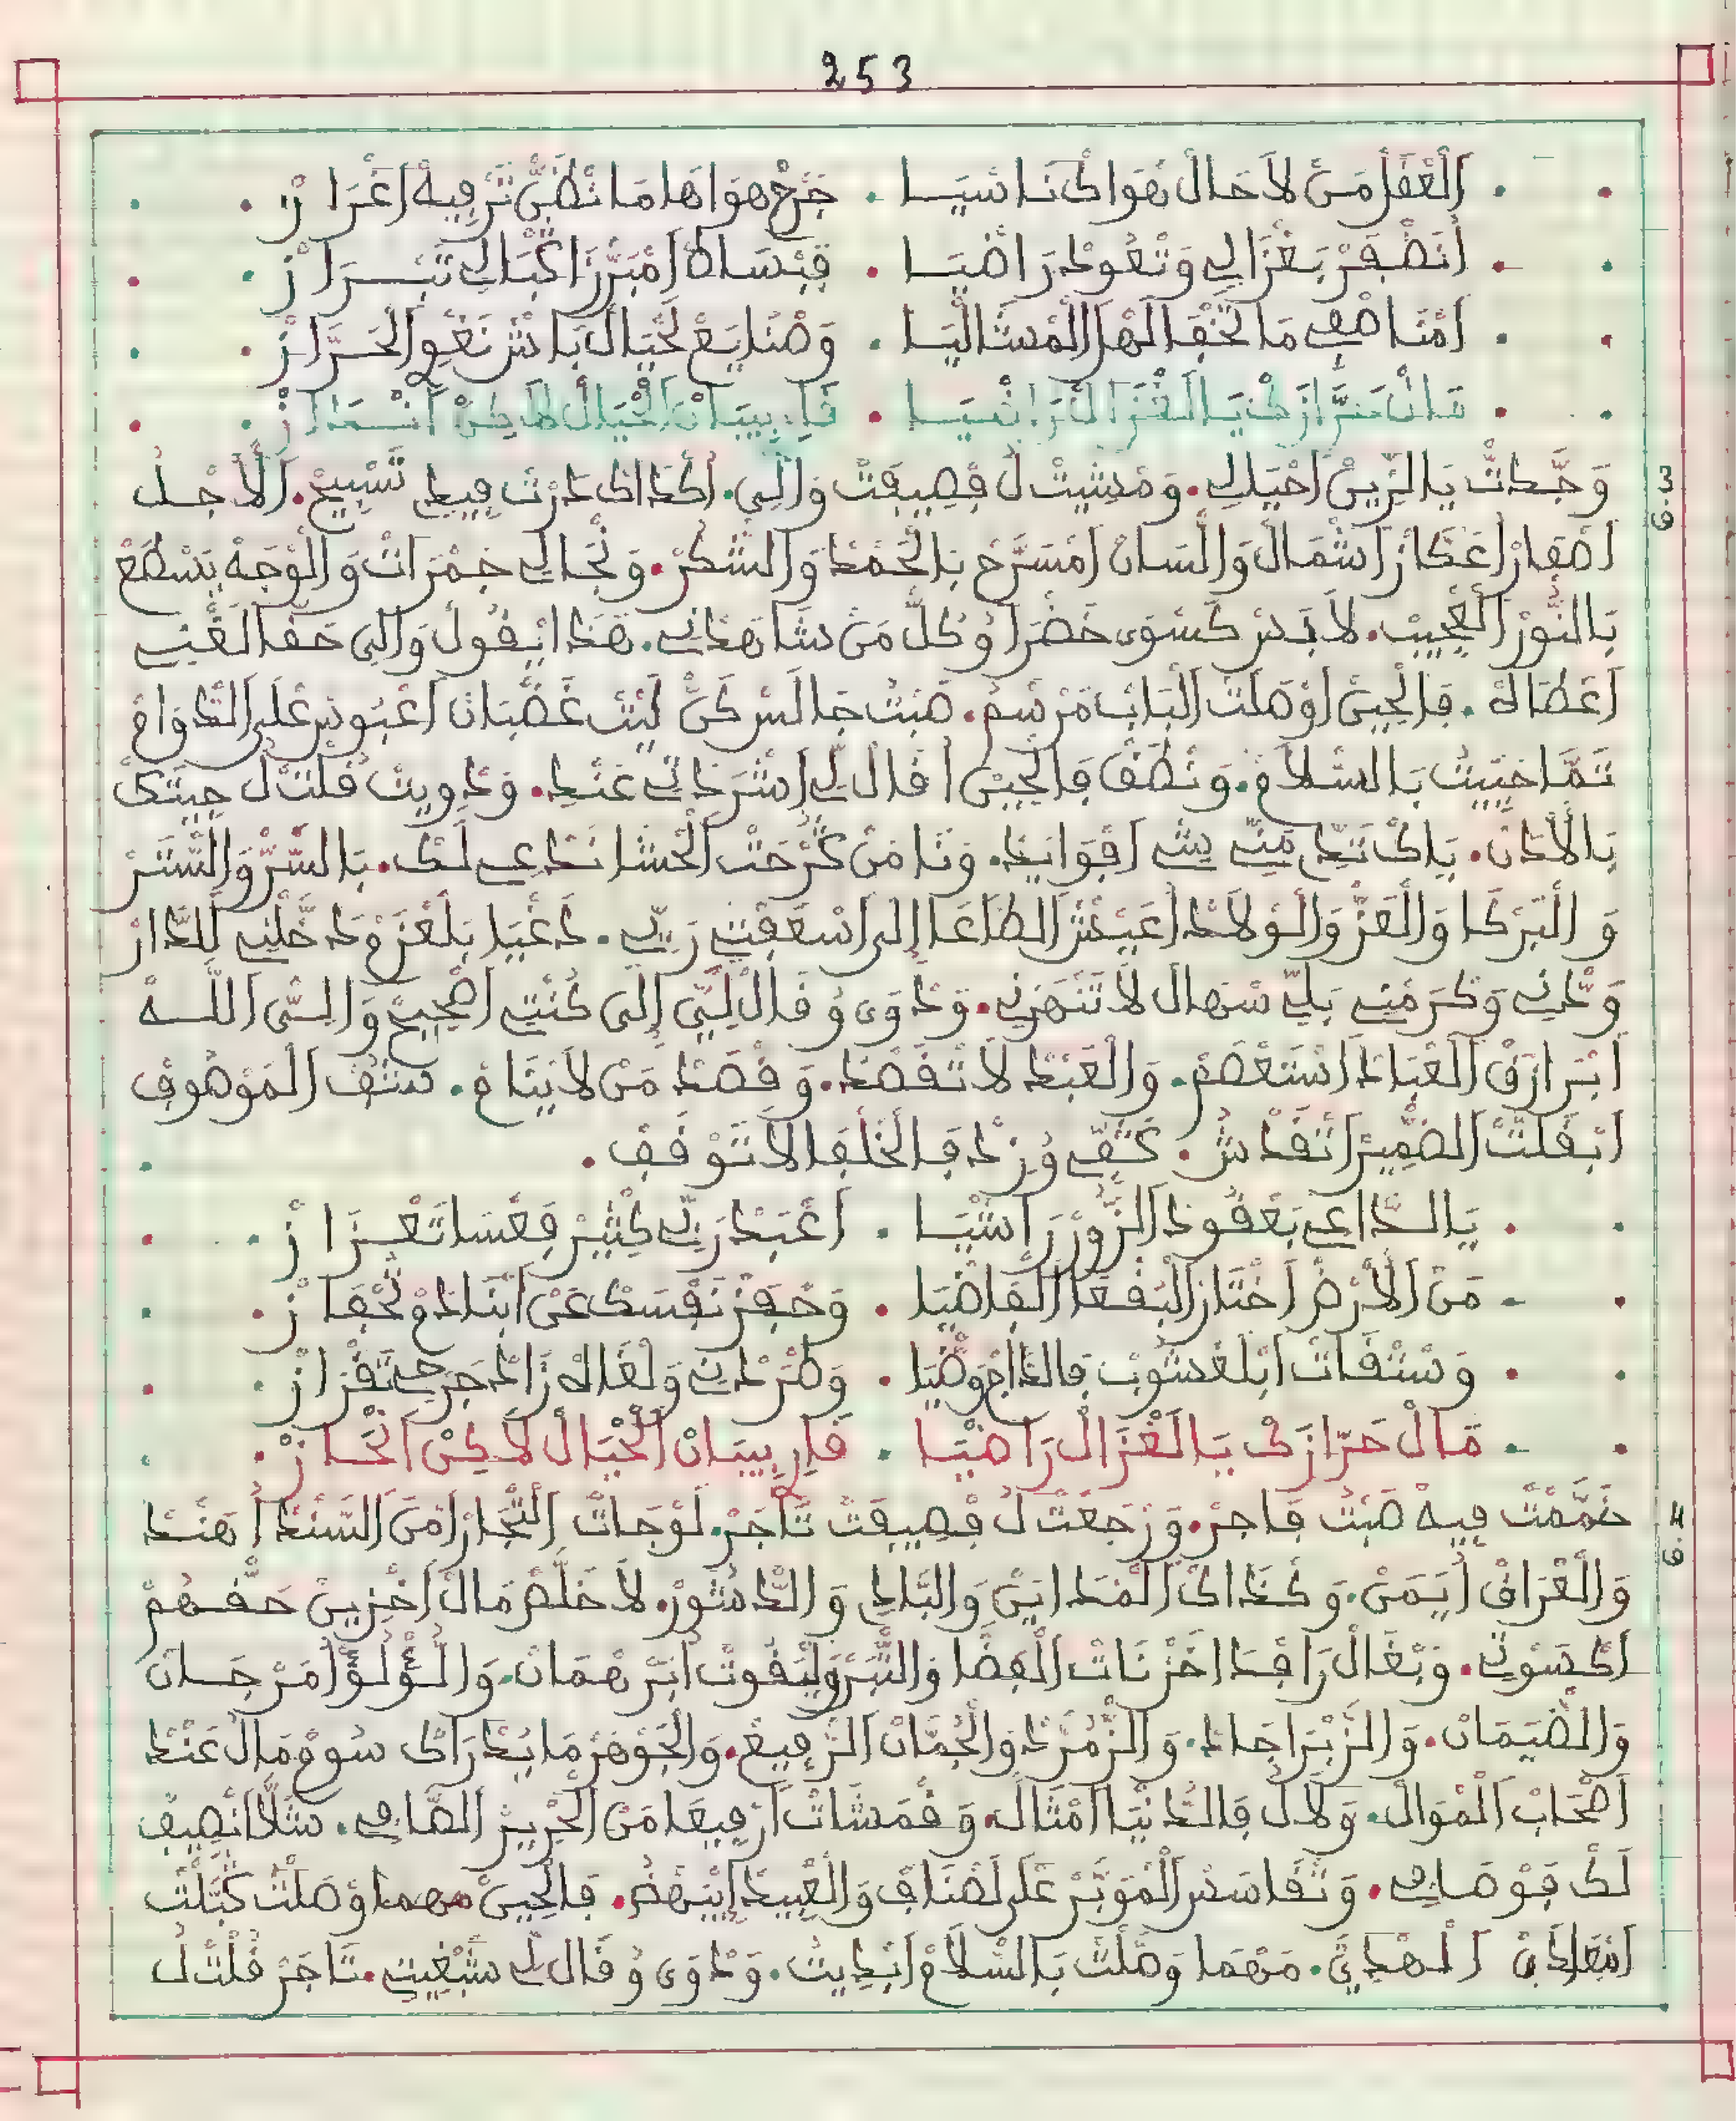 253
الْعْقَلْ مَنْ لاَحَالْ هْوَاكْ نَاسْيَا . جَرْحْ هوَاهَا مَا نْظَنّْ تَرْفِيهْ اغْرَازْ
انَضْفَرْ بَغْزَالِي وَتْعُودْ رَاضْيَا . فِبْسَاطْ امْبَرَّزْ اكْبَالِي تَبْرَازْ
امْنَاصْفِي مَا تَخْفَى لَهْلْ الْمْسَالْيَا . وَصْنَايَعْ لَخْيَالْ بَاشْ نَغْوِي الْحَرَّازْ
مَالْ حَرَّازَكْ يَا الْغْزَالْ رَاضْيَا . فَارِ بِيبَانْ الْخْيَالْ لَاكِنْ
3
ق
وَجَّدْتْ يَا الزِّينْ احْيَالِي . وَمْشِيتْ لُ فْصِيفَتْ وَالِي . اكْدَاكْ دَرْتْ فِيدِي تَسْبِيحْ . الَاجْلُ
اصْفَارْ اعْكَازْ اشْمَالْ وَالْسَانْ امْسَرَّحْ بَالْحَمْدْ وَالشُّكْرْ . وَنْجَالِي جَمْرَاتْ وَالْوْجَهْ يَسْطَعْ
بَالنُّورْ الْعْجِيبْ . لاَبَسْ كَسْوَى خَضْرَا وْكُلّْ مَنْ شَاهَدْنِي . هَدَا ايْقُولْ وَالِي حَقْ الْغْنِي
اعْطَالَهْ . فَالْحِينْ اوْصَلْتْ الْبَابْ مَرْسْمُ . صَبْتُ جَالَسْ كَنّْ لَيْتْ غَضْبَانْ اعْبُوسْ عْلَى الدّْوَامْ
تَمَّا حَيِّيتُ بَالسّْلاَمْ . وَنْطَقْ فَالْحِينْ اقَالْ لِي اشْ رَدْتِي عَنْدِي . وَدْوِيتْ قُلْتْ لُ جِيتَكْ
بَالْأَدَنْ . بَاكْ تَدِّي مَنِّي شِي افْوَايَدْ . وَنَا مَنْ كُرْحَتْ الْحْشَا نَدْعِي لَكْ . بَالسَّرّْ وَالسّْتَرْ
وَالْبَرْكَا وَالْعَزّْ وَالْوْلَادْ اعَيْشْ الطَّاعَا الَى اسْعَفْتِ رَبِّي . دَغْيَا بَلْعْزَمْ دَخَّلْنِي لَلدَّارْ
وَدْنِي وَكْرَمْنِي بَلِّي سْهَالْ لاَ تَنْهَرْنِي . وَدْوَى وُقَالْ لِيِّي إلَى كُنْتِ اصْحِيحْ وَالِي اللَّهْ
ابْرَازَقْ الْعْبَادْ اسْتَعْصَمْ . وَالْعَبْدْ لاَ تْقَصْدُ . وَقْصَدْ مَنْ لاَ يْنَامْ . سْتَفْ الْمَوْصُوفْ
ابْقَلْتْ الضّْمِيرْ اتَّقَدْسْ . كَتْفِي وُزِدْ فَالْخَلْفَا لاَ تَوْقَفْ .
يَا الدَّاعِي بَعْقُودْ الزُّورْ رَاشْيَا . اعْبَدْ رَبِّي كِثِيرْ فَعْسَا تَعْزَازْ
مَنْ الْاَرْضْ اخْتَازْ الْبُقْعَا الْقَاصْيَا . وَحْفَزْ نَفْسَكْ عَنْ ابْنَادَمْ تُحْفَازْ
وَسْتْفَاتْ ابْلَغْشُوبْ فَالدَّاجْ وَضْيَا . وَطْرَدْنِي وَلْقَالْهْ زَادْ جَرْحِي تَفْزَازْ
مَالْ حَرَّازَكْ يَا الْغْزَالْ رَاضْيَا . فَارِ بِيبَانْ الْخْيَالْ لَاكِنْ انْحَازْ
4
ق
خَمَّمْتْ فِيهْ صَبْتُ فَاجَرْ . وَرْجَعْتْ لُ فْصِيفَتْ تَاجَرْ . لَوْ جَاتْ التُّجَّارْ امَنْ السَّنْدْ اهَنْدْ
وَالْعْرَاقْ ايَمَنْ . وَكْدَاكْ الْمْدَايَنْ وَالْبَادِي وَالدَّشُورْ . لاَ خَلَّصْ مَالْ اخْزِينْ حَقْهُمْ
اكْسَوْنِي . وَبْغَالْ رَافْدَا خَزْنَاتْ الْفَضَّا وَالتَّبْرْ وَلْيَقُوتْ ابَرْهَمَانْ . وَالُّؤْلُؤْ امَرْجَانْ
وَالضَّيَمَانْ . وَالزَّبْرَاجَدْ . وَالزُّمُرَّدْ وَالْجُمَّانْ الرّْفِيعْ . وَالْجَوْهَرْ مَا يَدْرَاكْ سُومْ مَالُ عَنْدْ
اصْحَابْ الْمْوَالْ . وَلاَ لُ فَالدَّنْيَا امْثَالْ . وَقْمَشَاتْ ارْفِيعَا مَنْ الْحْرِيرْ الصَّافِي . شَلَّا انْصِيفْ
لَكْ فَوْصَافِي . وَنْفَاسْ الْمَوْبَرْ عْلَى لَصْنَافْ وَالْعْبِيدْ ايْنَهْضُ . فَالْحِينْ مهما وْصَلْتْ كَبَّلْتْ
الْهْدِيَّ . مَهْمَا وَصَّلْتْ بَالسّْلاَمْ ابْدِيتْ . وَدْوَى وُقَالْ لِي شَبْغِيتِ . تَاجَرْ قُلْتْ لُ